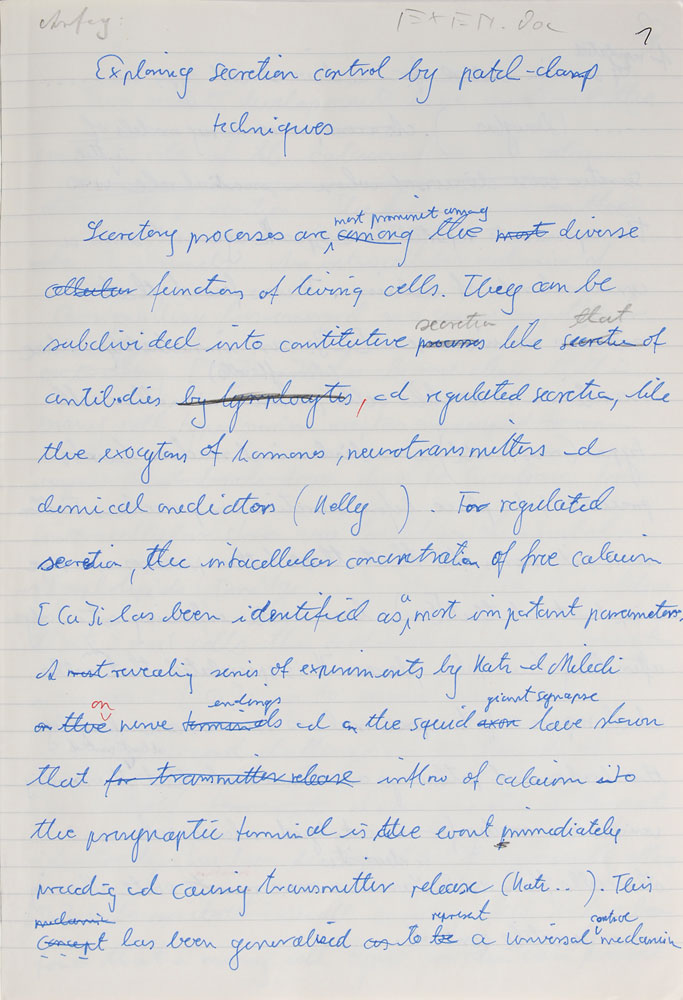 Anfg.
EXEM.doc
1
Exploring secretion control by patch-clamp
techniques
most prominent among
Secretory processes are among the most diverse
cellular functions of living cells. They can be
secretion that
subdivided into constitutive processes like secretion of
antibodies by lymphocytes, and regulated secretion, like
the exocytosis of hormones, neurotransmitters and
chemical mediators (Kelly ). For regulated
secretion, the intracellular concentration of free calcium
a
[Ca]i has been identified as most important parameters.
A most revealing series of experiments by Katz and Miledi
on endings giant synapse
on the nerve terminals and on the squid axon have shown
that for transmitter release inflow of calcium into
the presynaptic terminal is the event immediately
preceding and causing transmitter release (Katz..). This
mechanism represent control
Concept has been generalised as to be a universal mechanism